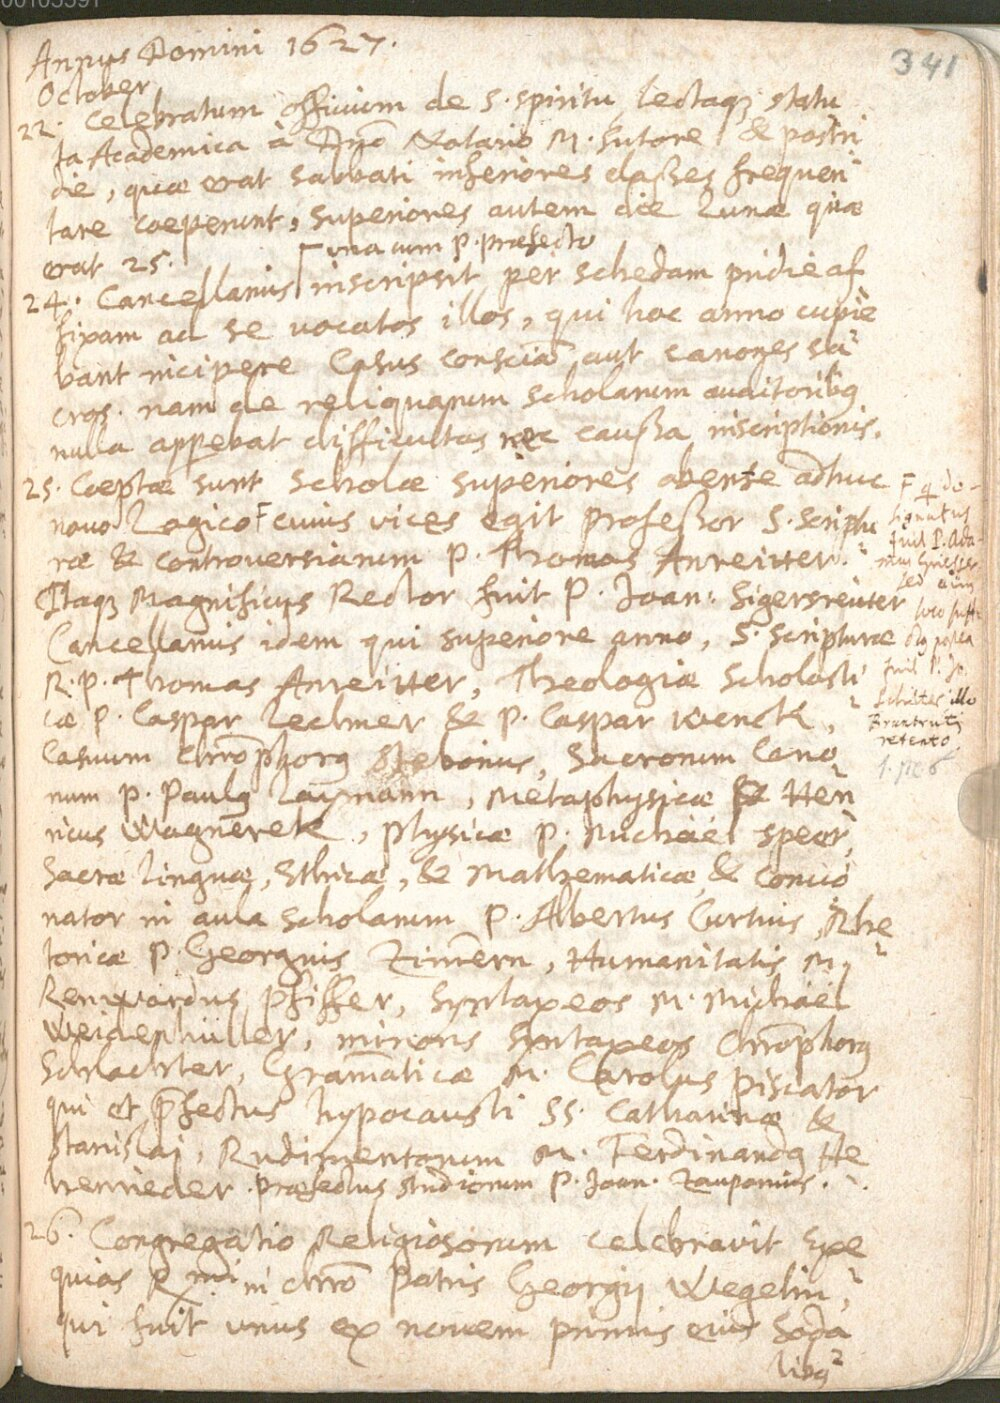 00105591
341
Annus Domini 1627.
October
22. Celebratum officium de S. Spiritu, lectaq; statu
ta Academica à Dno Notario M. Sutore / & postri
die, quae erat sabbati inferiores classes frequen
tare coeperunt, superiores autem die lunae quae
erat 25.
una cum P. praefecto
24. Cancellarius inscripsit per schedam pridie af
fixam ad se vocatos illos, qui hoc anno cupie
bant incipere Casus conscia aut canones sa
cros. nam de reliquarum scholarum auditoribq
nulla apperat difficultas nec caussa inscriptionis.
25. Coeptae sunt Scholae superiores absente adhuc
novo Logico F cuius vices egit professor S. Scriptu
rae & controversiarum P. Thomas Anreitter.
Itaq; Magnificus Rector fuit P. Joan: Sigersreuter
Cancellarius idem qui superiore anno, S. Scripturae
R. P. Thomas Anreitter, Theologiae Scholasti
cae P. Caspar Lechner & P. Caspar Wenck,
Casuum Chrophorq Stebonius, Sacrorum Cano
num P. Paulq Laymann, Metaphysicae P. Hen
ricus Wagnerek, Physicae P. Michael Speer,
Sacrae linguae, Ethicae, & Mathematicae, & Concio
nator in aula scholarum P. Albertus Curtius, Rhe
toricae P. Georgius Zimern, Humanitatis M.
Renwardus Pfiffer, Syntaxeos M. Michael
Weidenhiller, minoris Syntaxeos Chrophorq
Schlachter, Gramaticae M. Carolus Piscator
qui et pfectus hypocausti SS. Catharinae &
Stanislai, Rudimentorum M. Ferdinandq He
benrieder. Praefectus studiorum P. Joan. Zauponius.
F q de-
signatus
fuit P. Ada-
mus
sed
loco
postea
fuit P. Jo.
Schütes illo
Bruntruti
retento
26. Congregatio Religiosorum celebravit Exe
quias Rmi in chro Patris Georgij Wegelin,
qui fuit unus ex novem primis eius Soda
libq